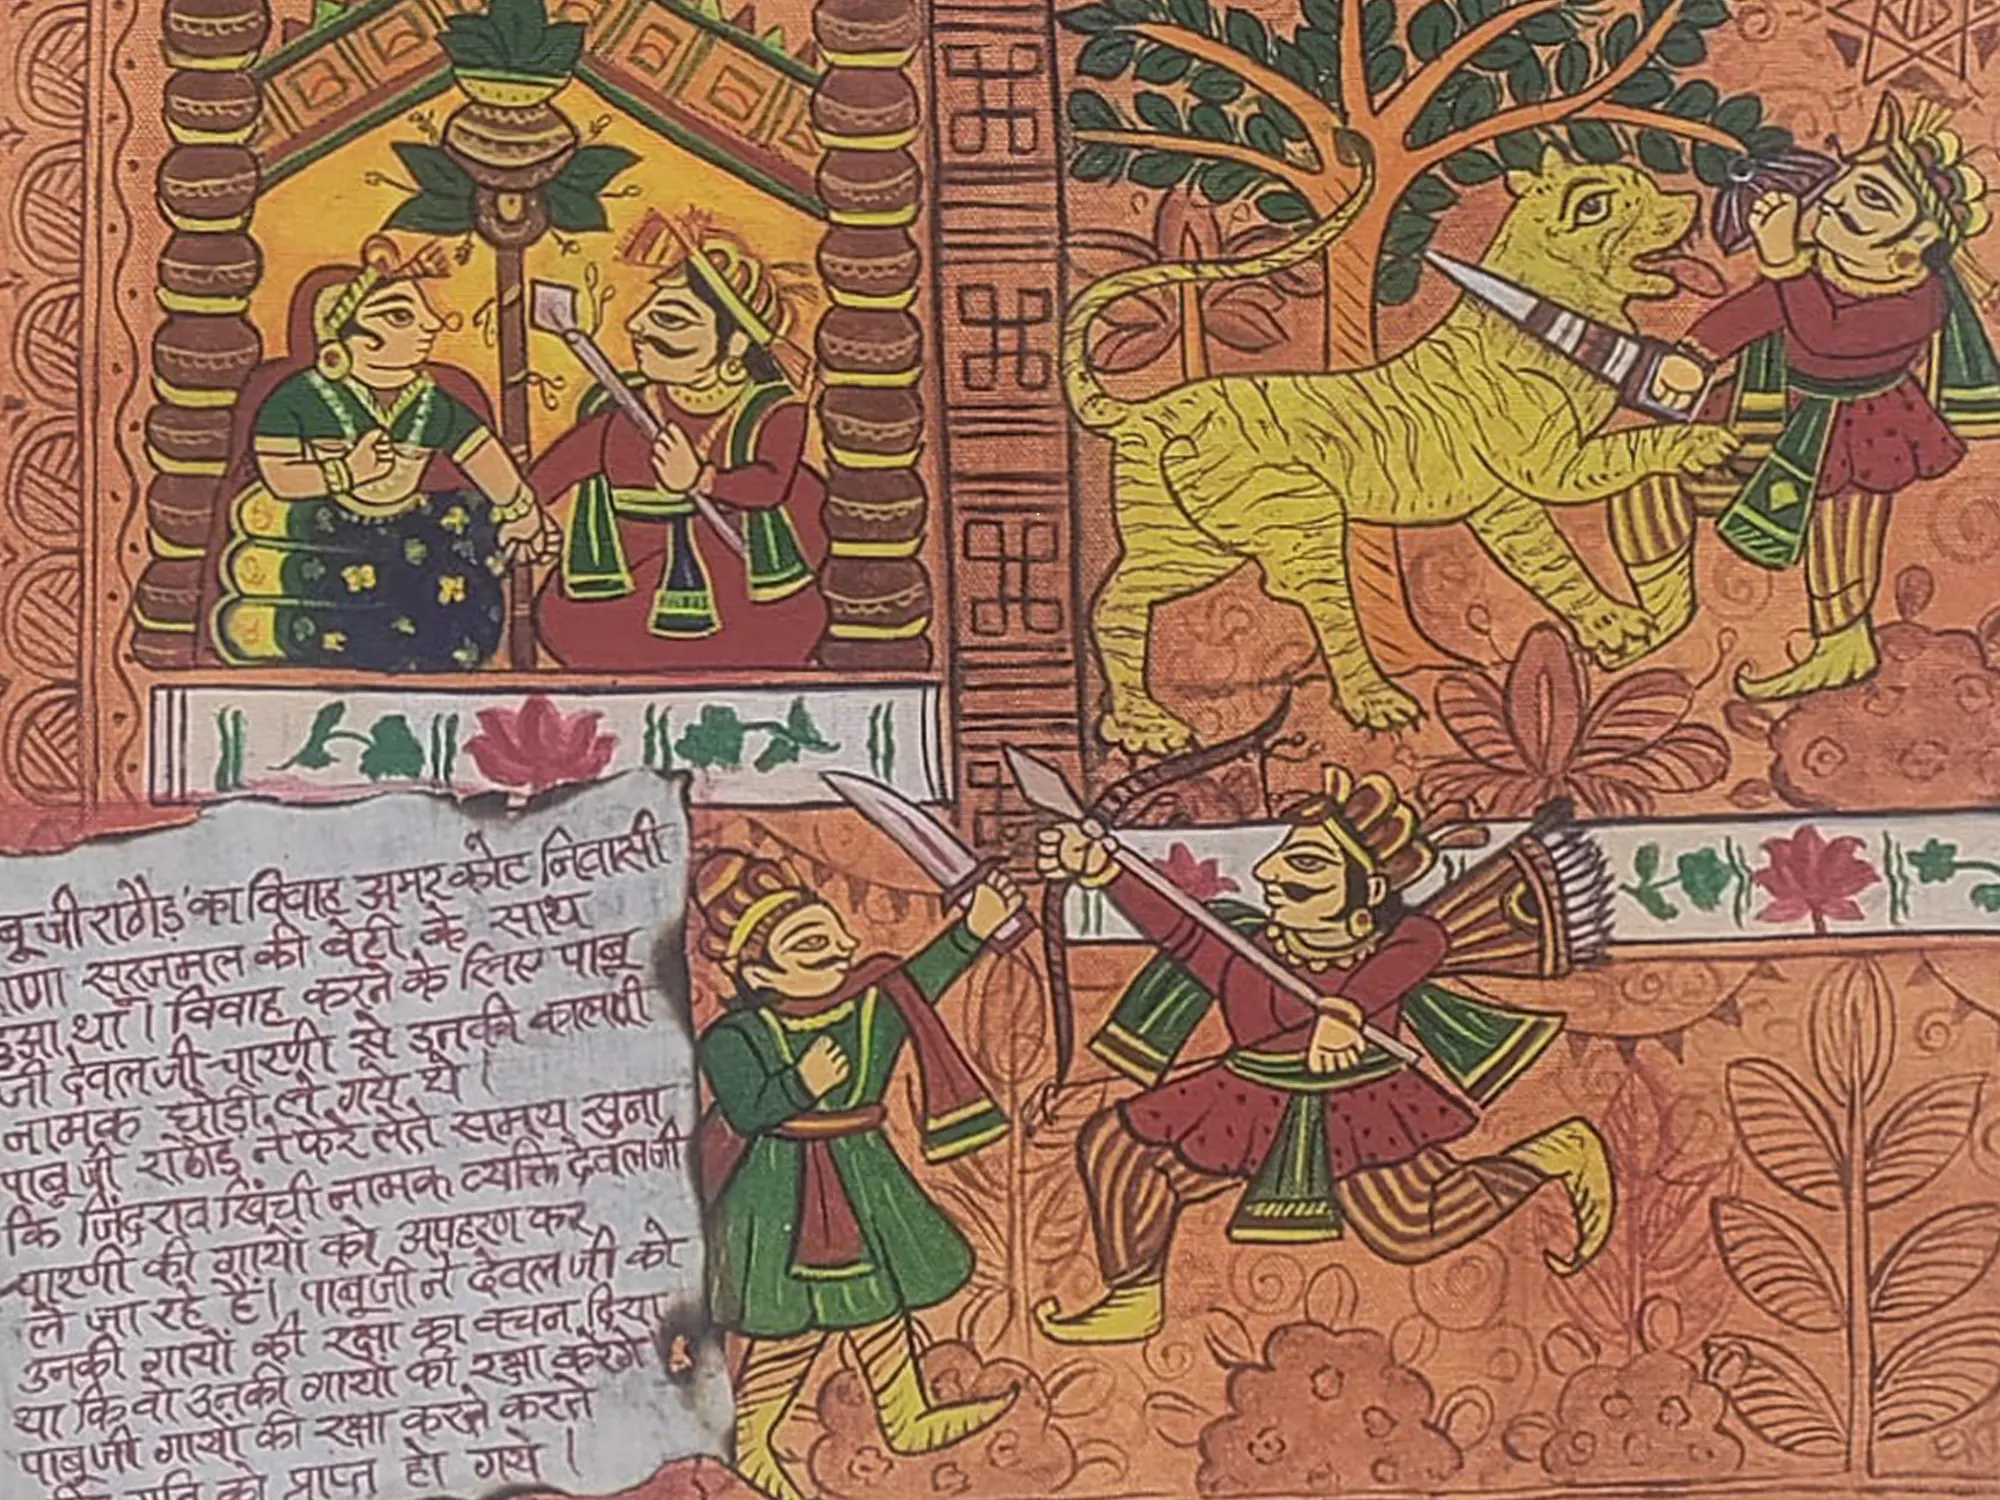 बूजी राठौड़ का विवाह अमर कोट निवासी
राणा सूरजमल की बेटी के साथ
हुआ था। विवाह करने के लिए पाबू
जी देवल जी चारणी से उनकी कालमी
नामक घोड़ी ले गये थे।
पाबू जी राठौड़ ने फेरे लेते समय सुना
कि जिंदराव खिंची नामक व्यक्ति देवल जी
चारणी की गायों को अपहरण कर
ले जा रहे हैं। पाबूजी ने देवल जी को
उनकी गायों की रक्षा का वचन दिया
था कि वो उनकी गायों की रक्षा करेंगे
पाबू जी गायों की रक्षा करते करते
गति को प्राप्त हो गये।